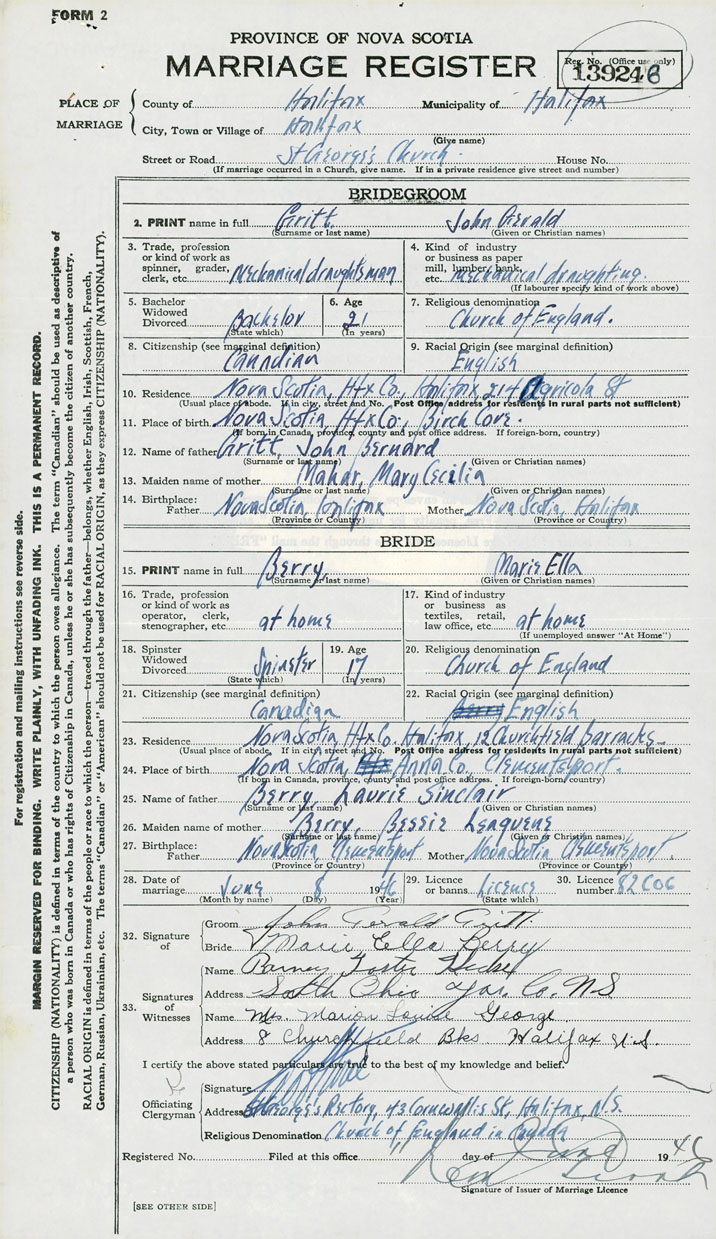 FORM 2
PROVINCE OF NOVA SCOTIA
MARRIAGE REGISTER
Reg. No. (Office use only)
139246
PLACE OF MARRIAGE
County of Halifax Municipality of Halifax
City, Town or Village of Halifax
(Give name)
Street or Road St George's Church. House No.
(If marriage occurred in a Church, give name. If in a private residence give street and number)
BRIDEGROOM
2. PRINT name in full Gritt John Gerald
(Surname or last name) (Given or Christian names)
3. Trade, profession or kind of work as spinner, grader, clerk, etc. Mechanical draughtsman
4. Kind of industry or business as paper mill, lumber, bank, etc. Mechanical draughting.
(If labourer specify kind of work above)
5. Bachelor Widowed Divorced Bachelor
(State which)
6. Age 21
(In years)
7. Religious denomination Church of England.
8. Citizenship (see marginal definition) Canadian
9. Racial Origin (see marginal definition) English
10. Residence Nova Scotia, Hfx Co, Halifax, 214 Agricola St
(Usual place of abode. If in city, street and No. Post Office address for residents in rural parts not sufficient)
11. Place of birth Nova Scotia, Hfx Co, Birch Cove.
(If born in Canada, province, county and post office address. If foreign-born, country)
12. Name of father Gritt, John Bernard
(Surname or last name) (Given or Christian names)
13. Maiden name of mother Mahar, Mary Cecilia
(Surname or last name) (Given or Christian names)
14. Birthplace: Father Nova Scotia, Halifax Mother Nova Scotia, Halifax
(Province or Country) (Province or Country)
BRIDE
15. PRINT name in full Berry Marie Ella
(Surname or last name) (Given or Christian names)
16. Trade, profession or kind of work as operator, clerk, stenographer, etc. at home
17. Kind of industry or business as textiles, retail, law office, etc. at home
(If unemployed answer "At Home")
18. Spinster Widowed Divorced Spinster
(State which)
19. Age 17
(In years)
20. Religious denomination Church of England
21. Citizenship (see marginal definition) Canadian
22. Racial Origin (see marginal definition) English
23. Residence Nova Scotia, Hfx Co. Halifax, 12 Churchfield barracks
(Usual place of abode. If in city, street and No. Post Office address for residents in rural parts not sufficient)
24. Place of birth Nova Scotia, Anna Co, Clementsport.
(If born in Canada, province, county and post office address. If foreign-born, country)
25. Name of father Berry, Laurie Sinclair
(Surname or last name) (Given or Christian names)
26. Maiden name of mother Berry, Bessie
(Surname or last name) (Given or Christian names)
27. Birthplace: Father Nova Scotia, Clementsport Mother Nova Scotia Clementsport.
(Province or Country) (Province or Country)
28. Date of marriage June 8 1946
(Month by name) (Day) (Year)
29. Licence or banns Licence
(State which)
30. Licence number 82606
32. Signature of
Groom John Gerald Gritt
Bride Marie Ella Berry
33. Signatures of Witnesses
Name Foster
Address South Ohio Yar. Co. N.S
Name Mrs. Marion Louise George
Address 8 Churchfield Bks Halifax N.S.
I certify the above stated particulars are true to the best of my knowledge and belief.
Officiating Clergyman
Signature
Address St George's Rectory, 43 Cornwallis St, Halifax, N.S.
Religious Denomination Church of England in Canada
Registered No. Filed at this office 11 day of June 1946
Signature of Issuer of Marriage Licence
[SEE OTHER SIDE]
For registration and mailing instructions see reverse side.
MARGIN RESERVED FOR BINDING. WRITE PLAINLY, WITH UNFADING INK. THIS IS A PERMANENT RECORD.
CITIZENSHIP (NATIONALITY) is defined in terms of the country to which the person owes allegiance. The term "Canadian" should be used as descriptive of
a person who was born in Canada or who has rights of Citizenship in Canada, unless he or she has subsequently become the citizen of another country.
RACIAL ORIGIN is defined in terms of the people or race to which the person—traced through the father—belongs, whether English, Irish, Scottish, French,
German, Russian, Ukrainian, etc. The terms "Canadian" or "American" should not be used for RACIAL ORIGIN, as they express CITIZENSHIP (NATIONALITY).